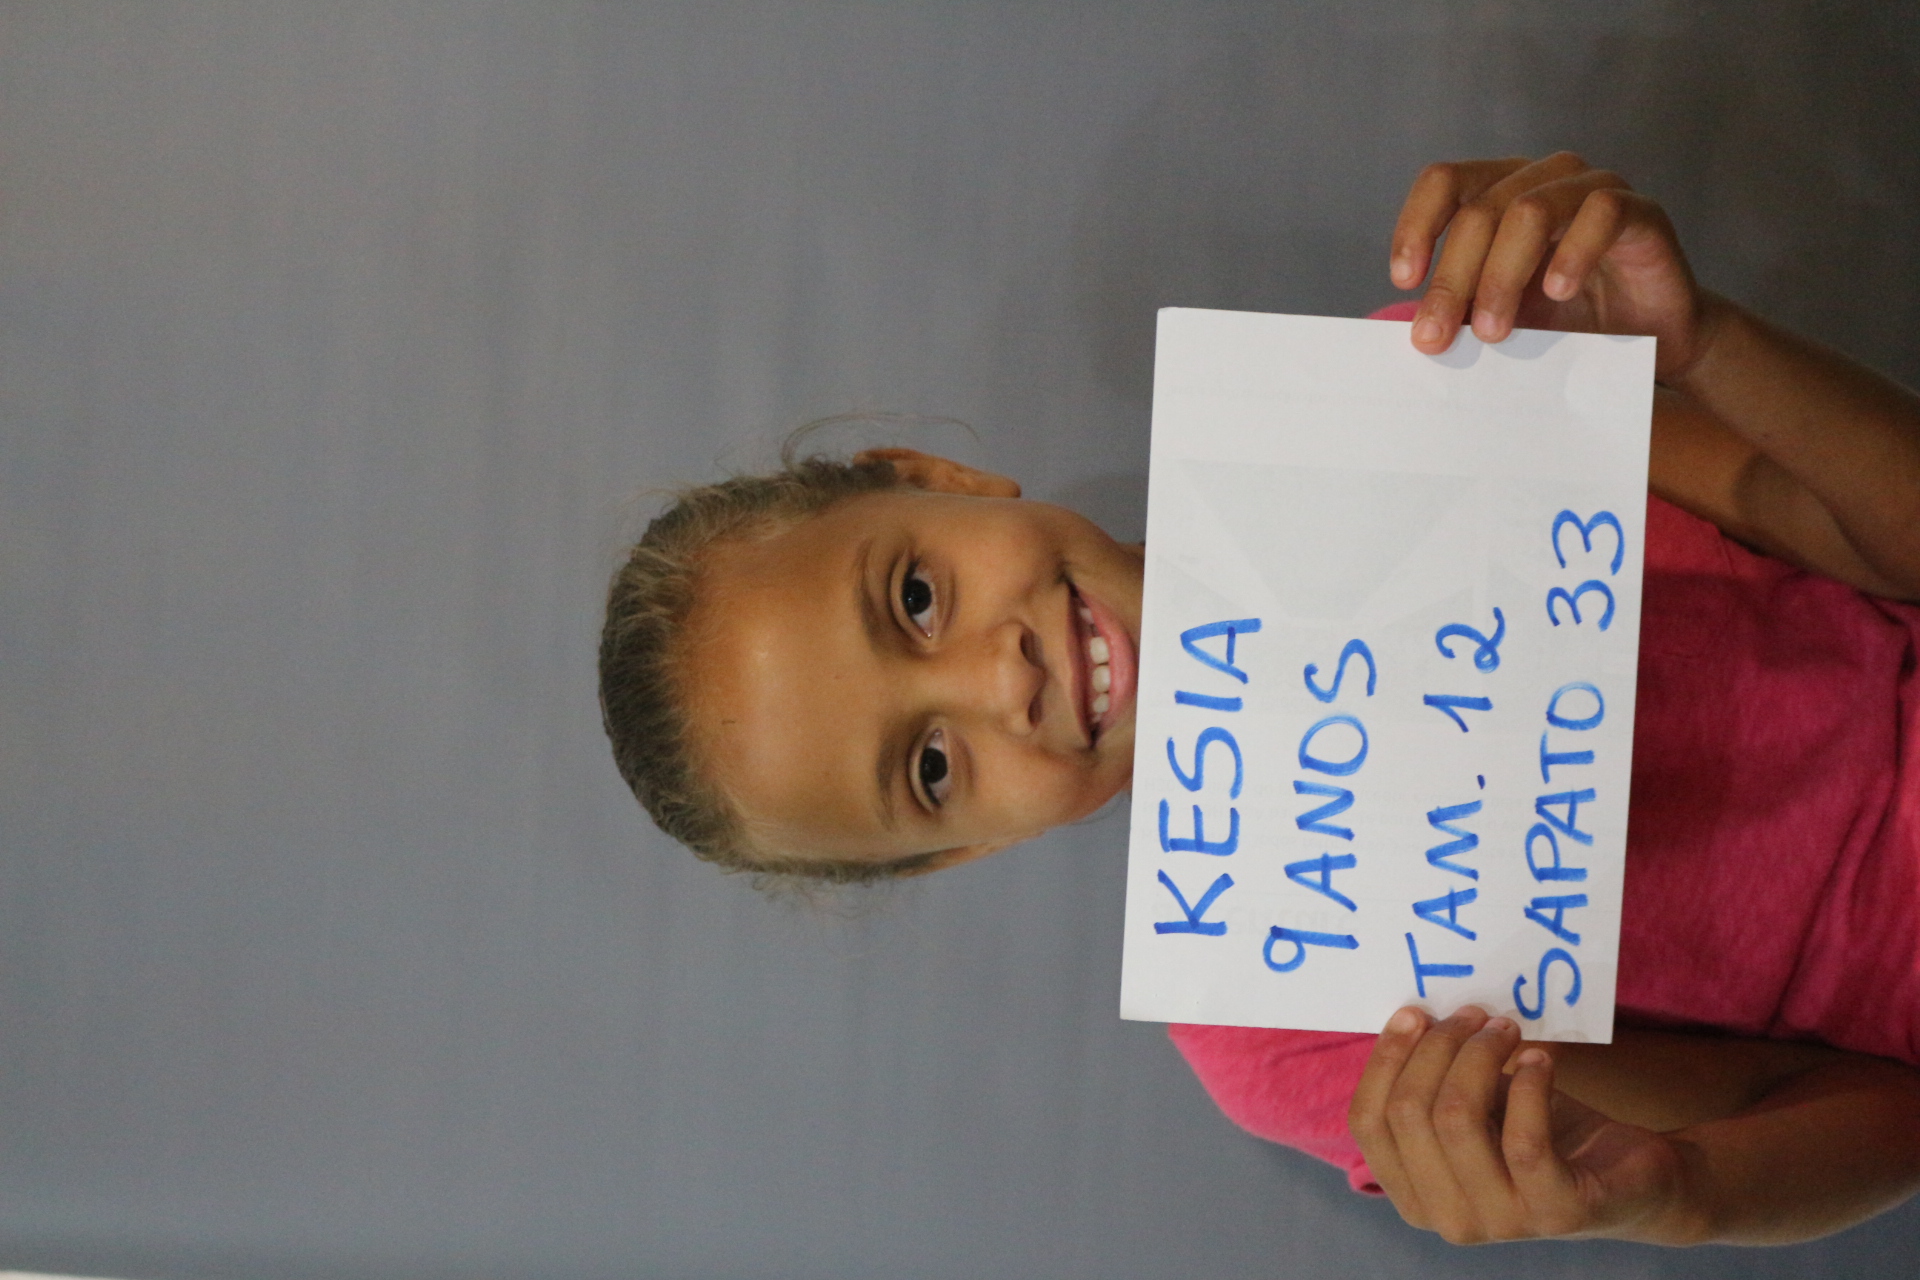 KESIA
9 ANOS
TAM. 12
SAPATO 33